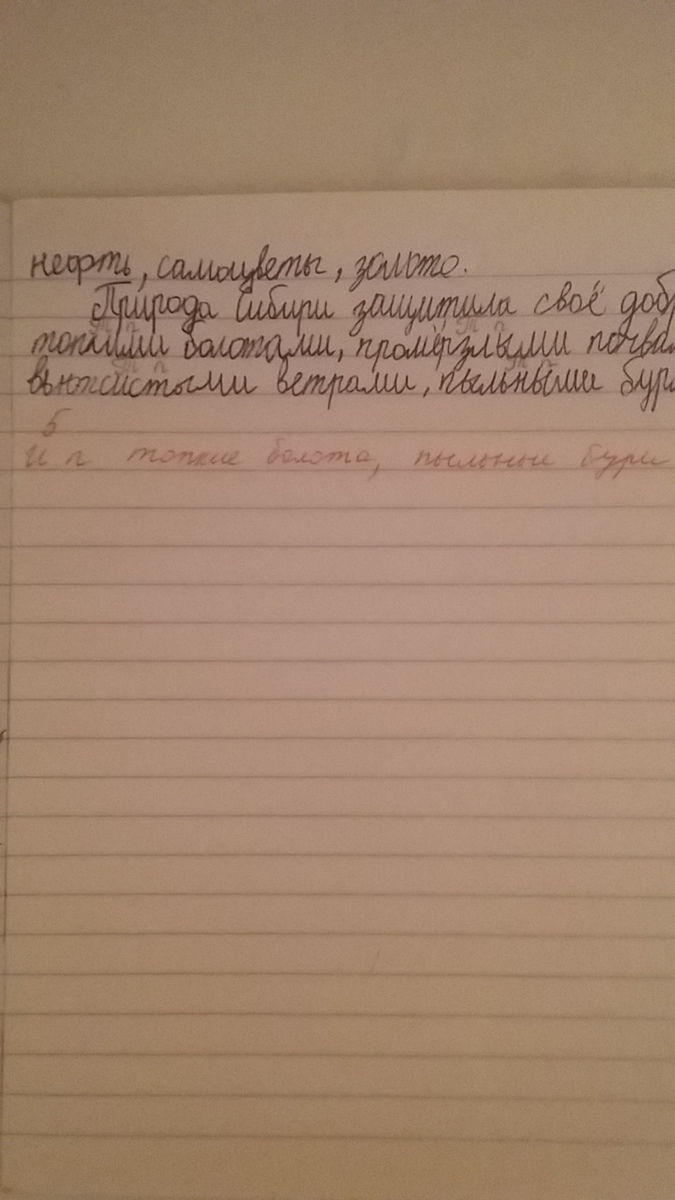 нефть, самоцветы, золото.
Природа Сибири защитила своё добр
топкими болотами, промёрзлыми почвам
ветрами, пыльными бура
5
И п топкие болота, пыльные бури